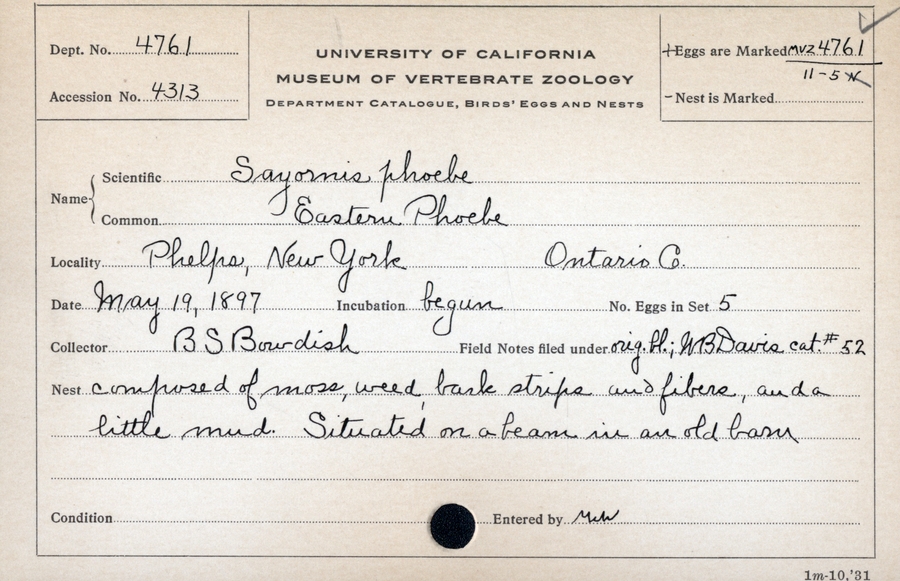 Dept. No. 4761
Accession No. 4313
UNIVERSITY OF CALIFORNIA
MUSEUM OF VERTEBRATE ZOOLOGY
DEPARTMENT CATALOGUE, BIRDS' EGGS AND NESTS
+Eggs are Marked MVZ 4761
11-5
-Nest is Marked
Name
Scientific Sayornis phoebe
Common Eastern Phoebe
Locality Phelps, New York Ontario Co.
Date May 19, 1897 Incubation begun No. Eggs in Set 5
Collector B S Bowdish Field Notes filed under orig. bl.; WB Davis cat. # 52
Nest composed of moss, weed, bark strips and fibers, and a
little mud. Situated on a beam in an old barn
Condition Entered by
1m-10,'31